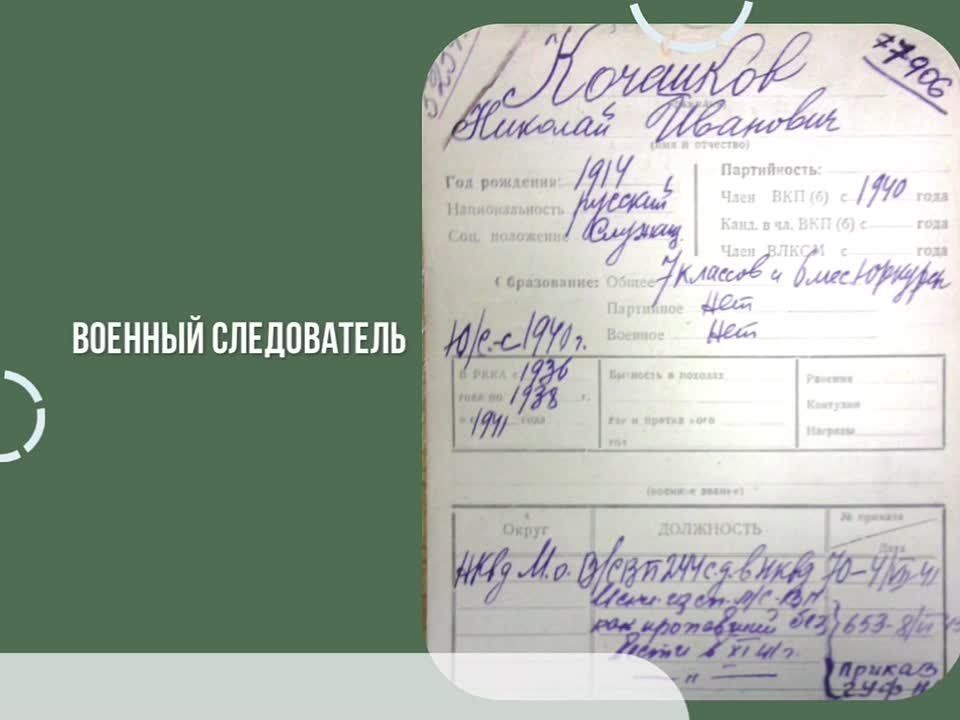 ВОЕННЫЙ СЛЕДОВАТЕЛЬ
77906
Кочашков
Николай Иванович
(имя и отчество)
Год рождения: 1914
Национальность русский
Соц. положение Служащ.
Партийность:
Член ВКП(б) с 1940 года
Канд. в чл. ВКП(б) с года
Член ВЛКСМ с года
Образование: Общее 7 классов и 6 мес юркурсы
Партийное Нет
Военное Нет
Ю/с.-с 1940 г.
В РККА с 1936
года по 1938 г.
и с 1941 года
Бытность в походах
Ранения
Контузии
Награды
(военное звание)
Округ
ДОЛЖНОСТЬ
№ приказа
Дата
НКвд М.о. В/С ВП 244 с.д. в НКвд 70-4/VII-41
как пропавший без
вести в XI 41 г.
653-8/VI
Приказ
ГУФ